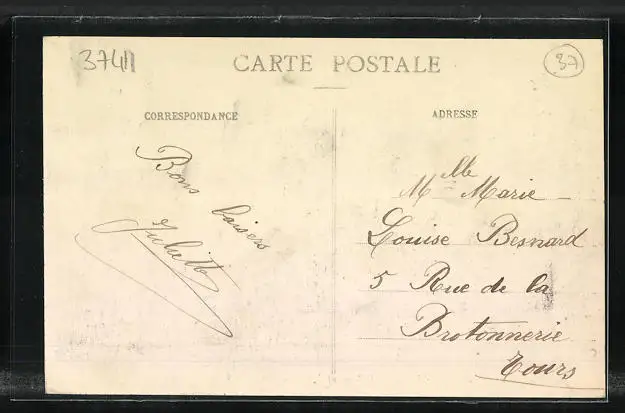 37411
CARTE POSTALE
37
CORRESPONDANCE
ADRESSE
Bons baisers
Juliette
Mlle Marie
Louise Besnard
5 Rue de la
Brotonnerie
Tours